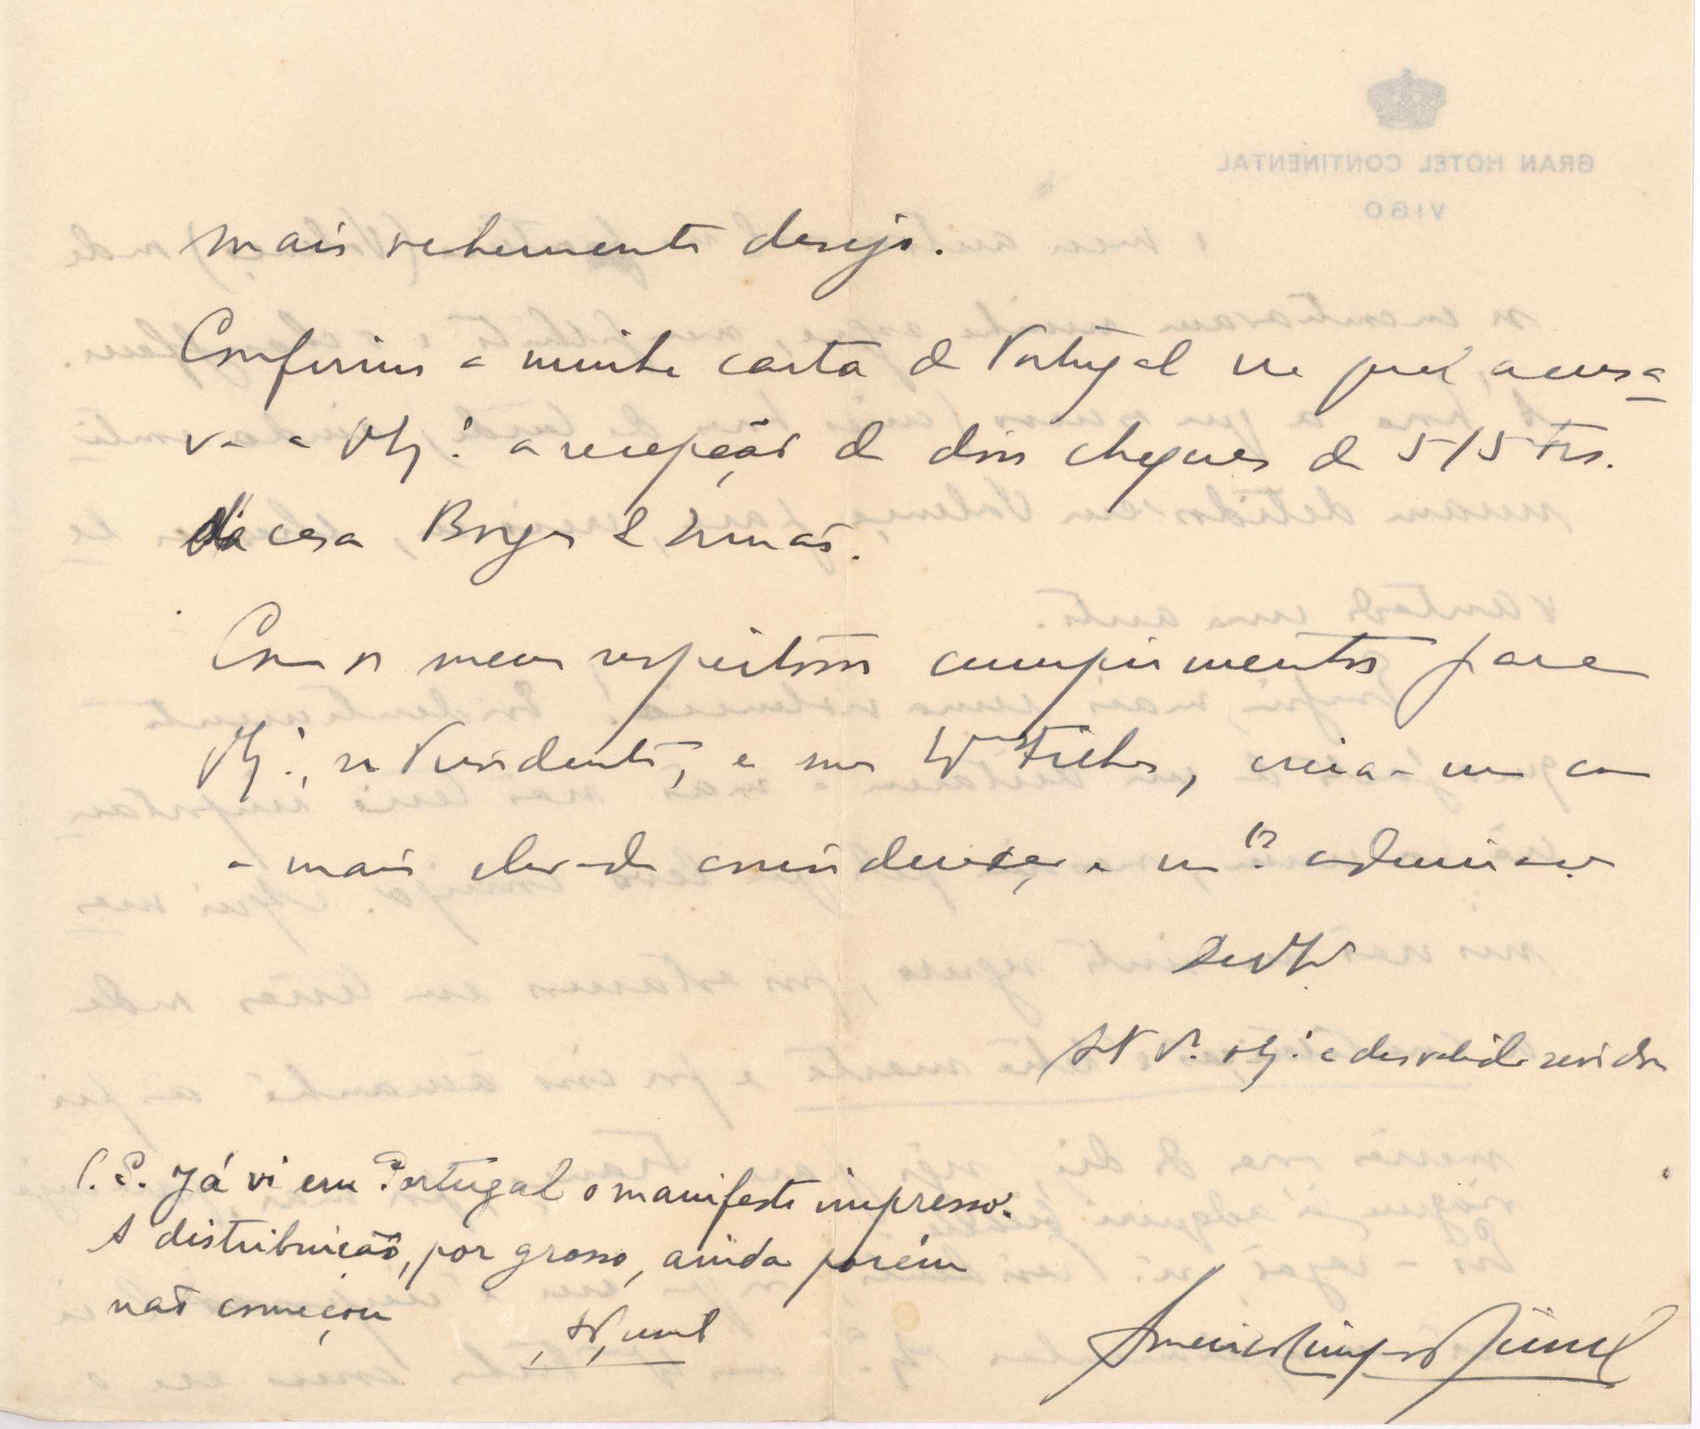 GRAN HOTEL CONTINENTAL
VIGO
mais vehemente desejo.
Confirmo a minha carta de Portugal na qual acusa-
va a V. Ex.ª a recepção de dois cheques de 515 Frs.
da casa Borges & Irmão.
Com os meus respeitosos cumprimentos para
V. Ex.ª, sr Presidente, e seus Filhos, creia-me com
a mais elevada consideração e m.ta admiração
De V. Ex.ª
P. S. Já vi em Portugal o manifesto impresso.
A distribuição, por grosso, ainda porém
não começou